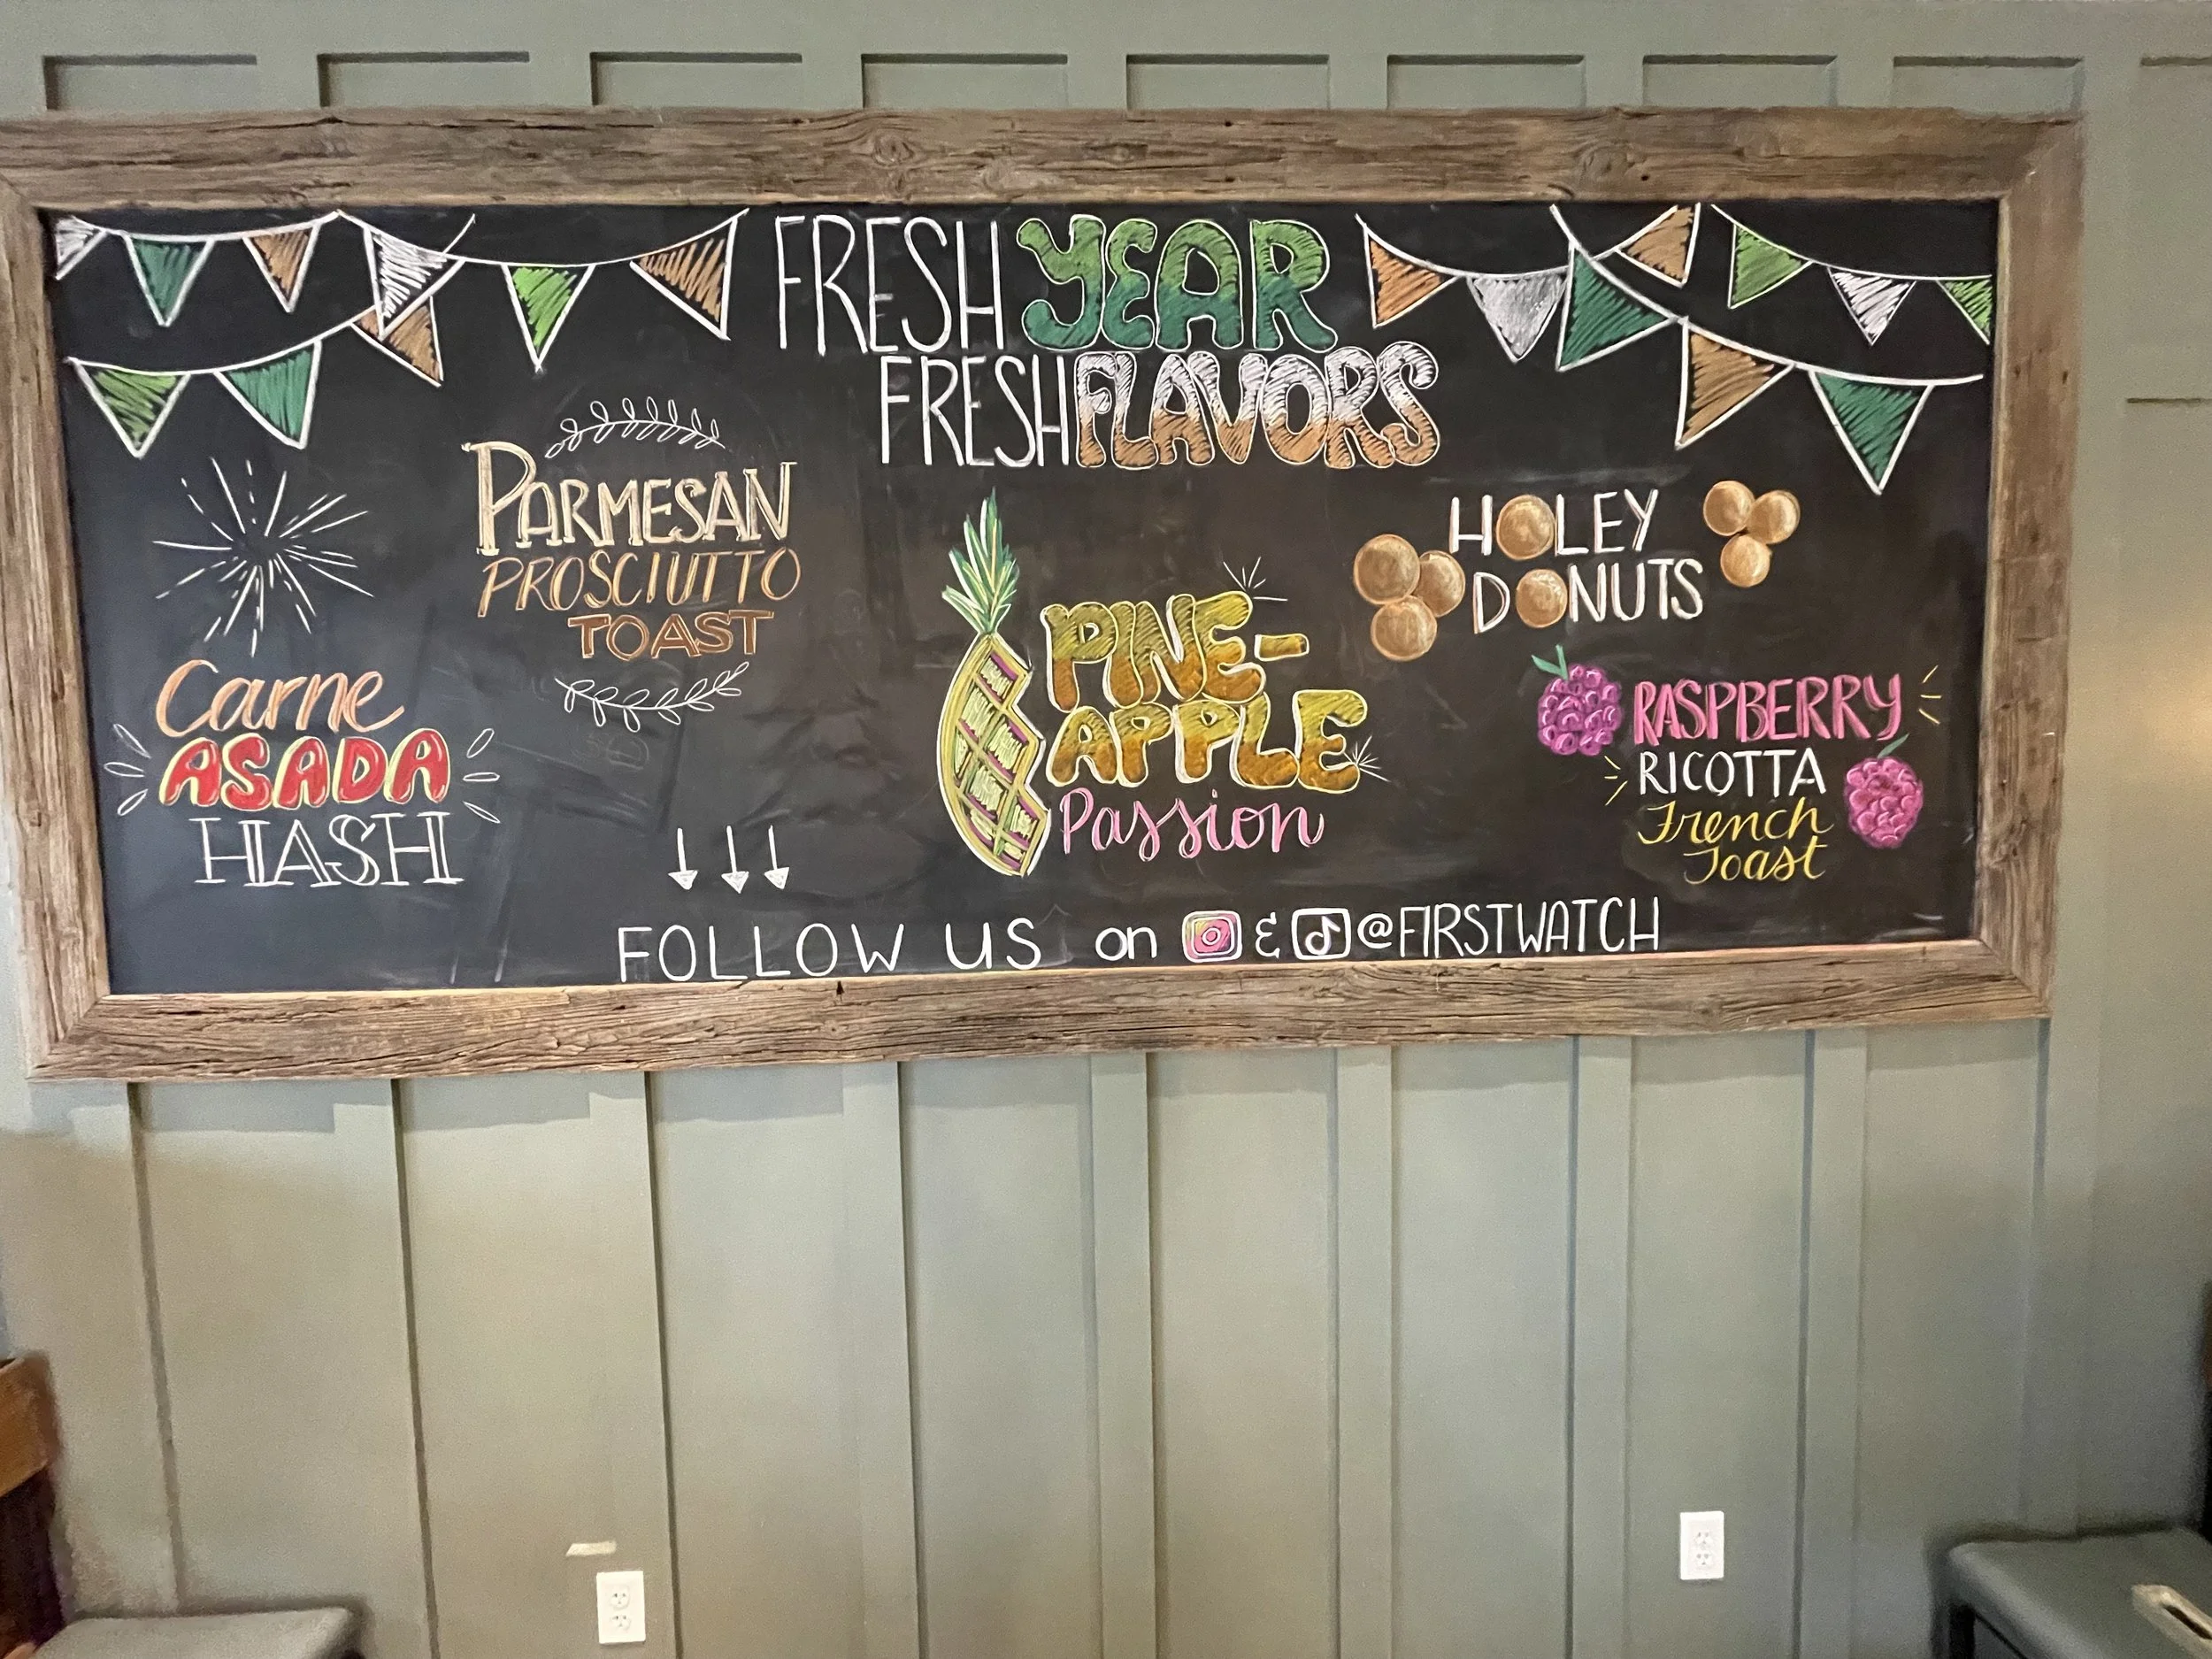 FRESH YEAR
FRESH FLAVORS
PARMESAN
PROSCIUTTO
TOAST
Carne
ASADA
HASH
PINE-
APPLE
Passion
HOLEY
DONUTS
RASPBERRY
RICOTTA
French
Toast
FOLLOW US on & @FIRSTWATCH